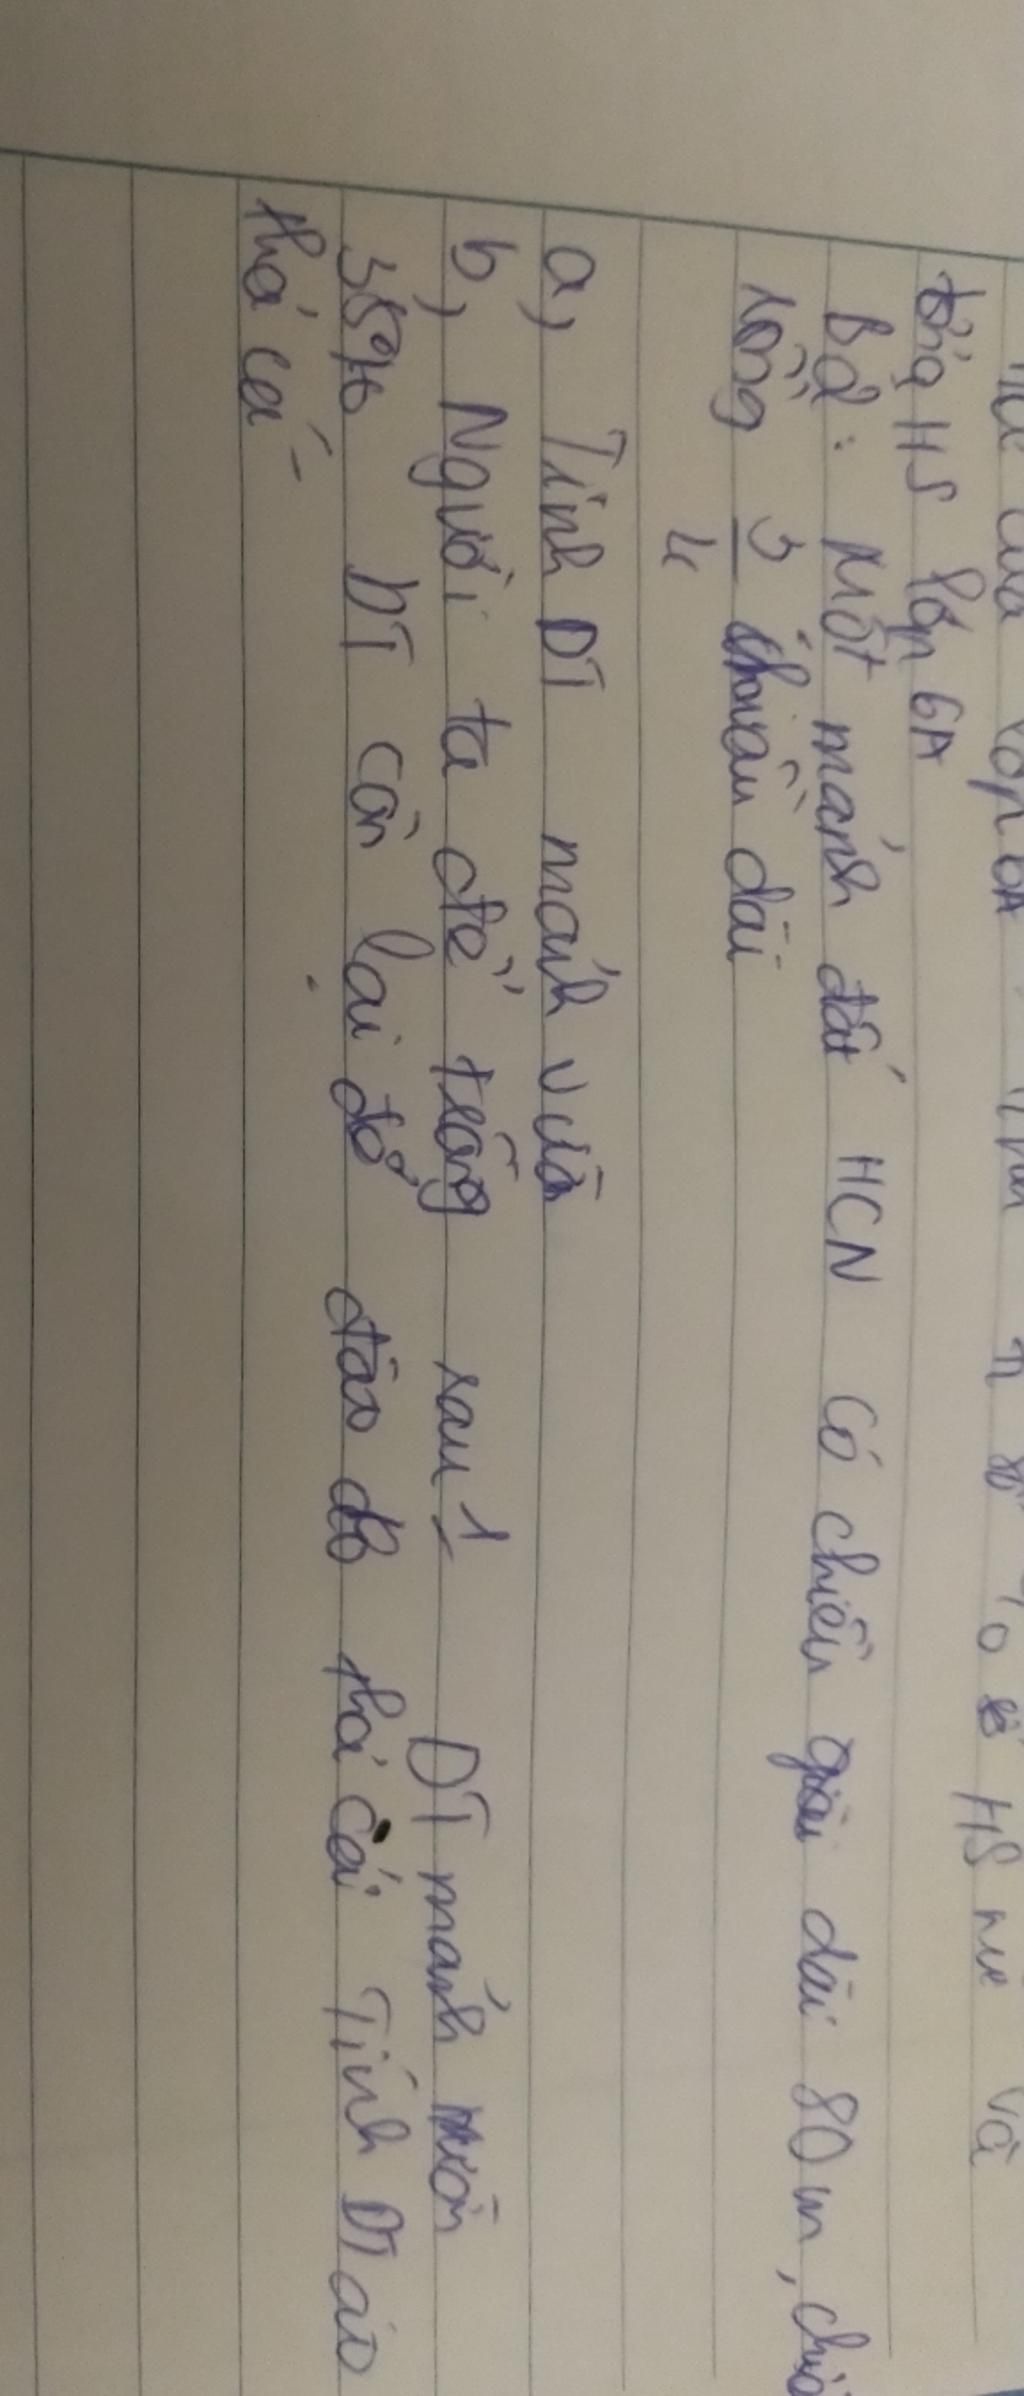 của HS lớp 6A
Bài: Một mảnh đất HCN có chiều dài 80 m, chiề
rộng 3/4 chiều dài
a, Tính DT mảnh vườn
b, Người ta để trồng rau 1 DT mảnh vườn
35% DT còn lại để đào ao thả cá Tính DT ao
thả cá